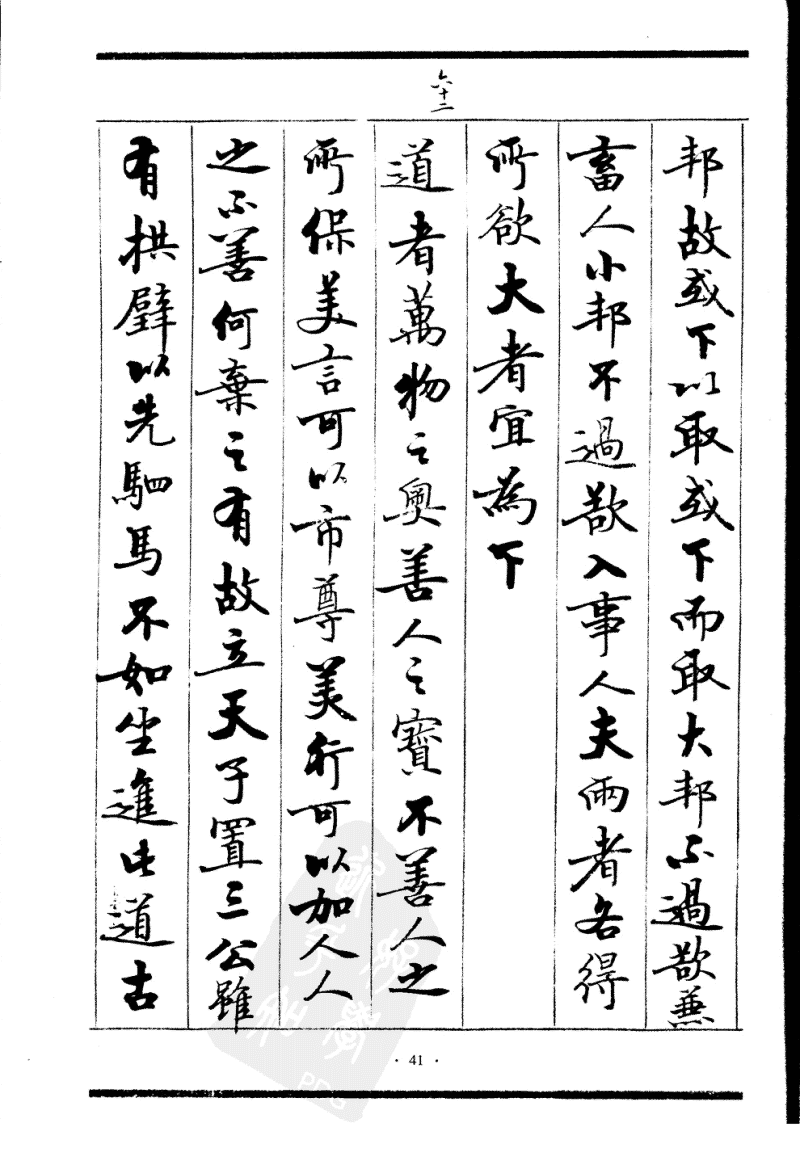 六十二
邦故或下以取或下而取大邦不過欲兼
畜人小邦不過欲入事人夫兩者各得
所欲大者宜為下
道者萬物之奧善人之寶不善人之
所保美言可以市尊美行可以加人人
之不善何棄之有故立天子置三公雖
有拱璧以先駟馬不如坐進此道古
· 41 ·